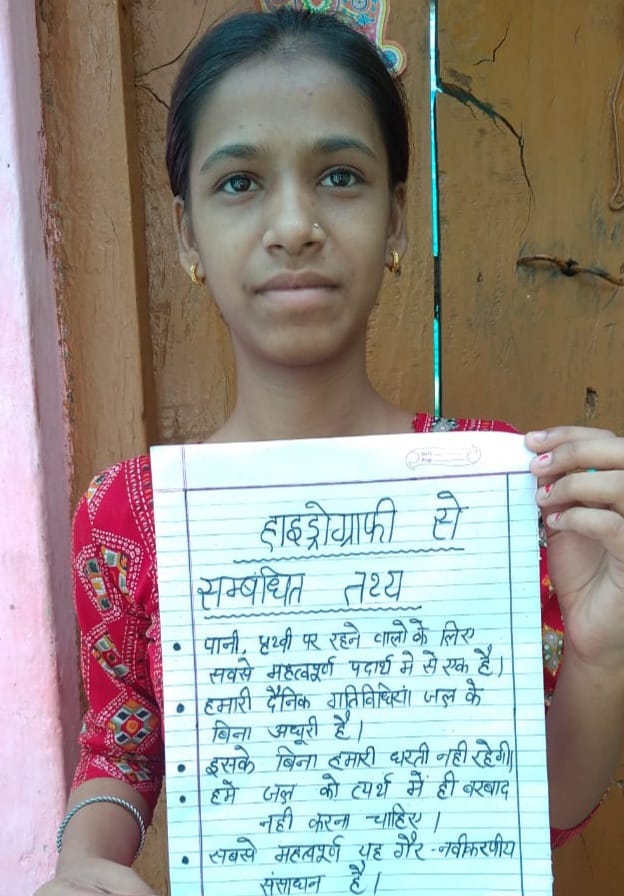 हाइड्रोग्राफी से
सम्बंधित तथ्य
• पानी, पृथ्वी पर रहने वालो के लिए
सबसे महत्वपूर्ण पदार्थ में से एक है।
• हमारी दैनिक गतिविधियां जल के
बिना अधूरी है।
• इसके बिना हमारी धरती नही रहेगी।
• हमें जल को व्यर्थ में ही बरबाद
नही करना चाहिए।
• सबसे महत्वपूर्ण यह गैर-नवीकरणीय
संसाधन है।